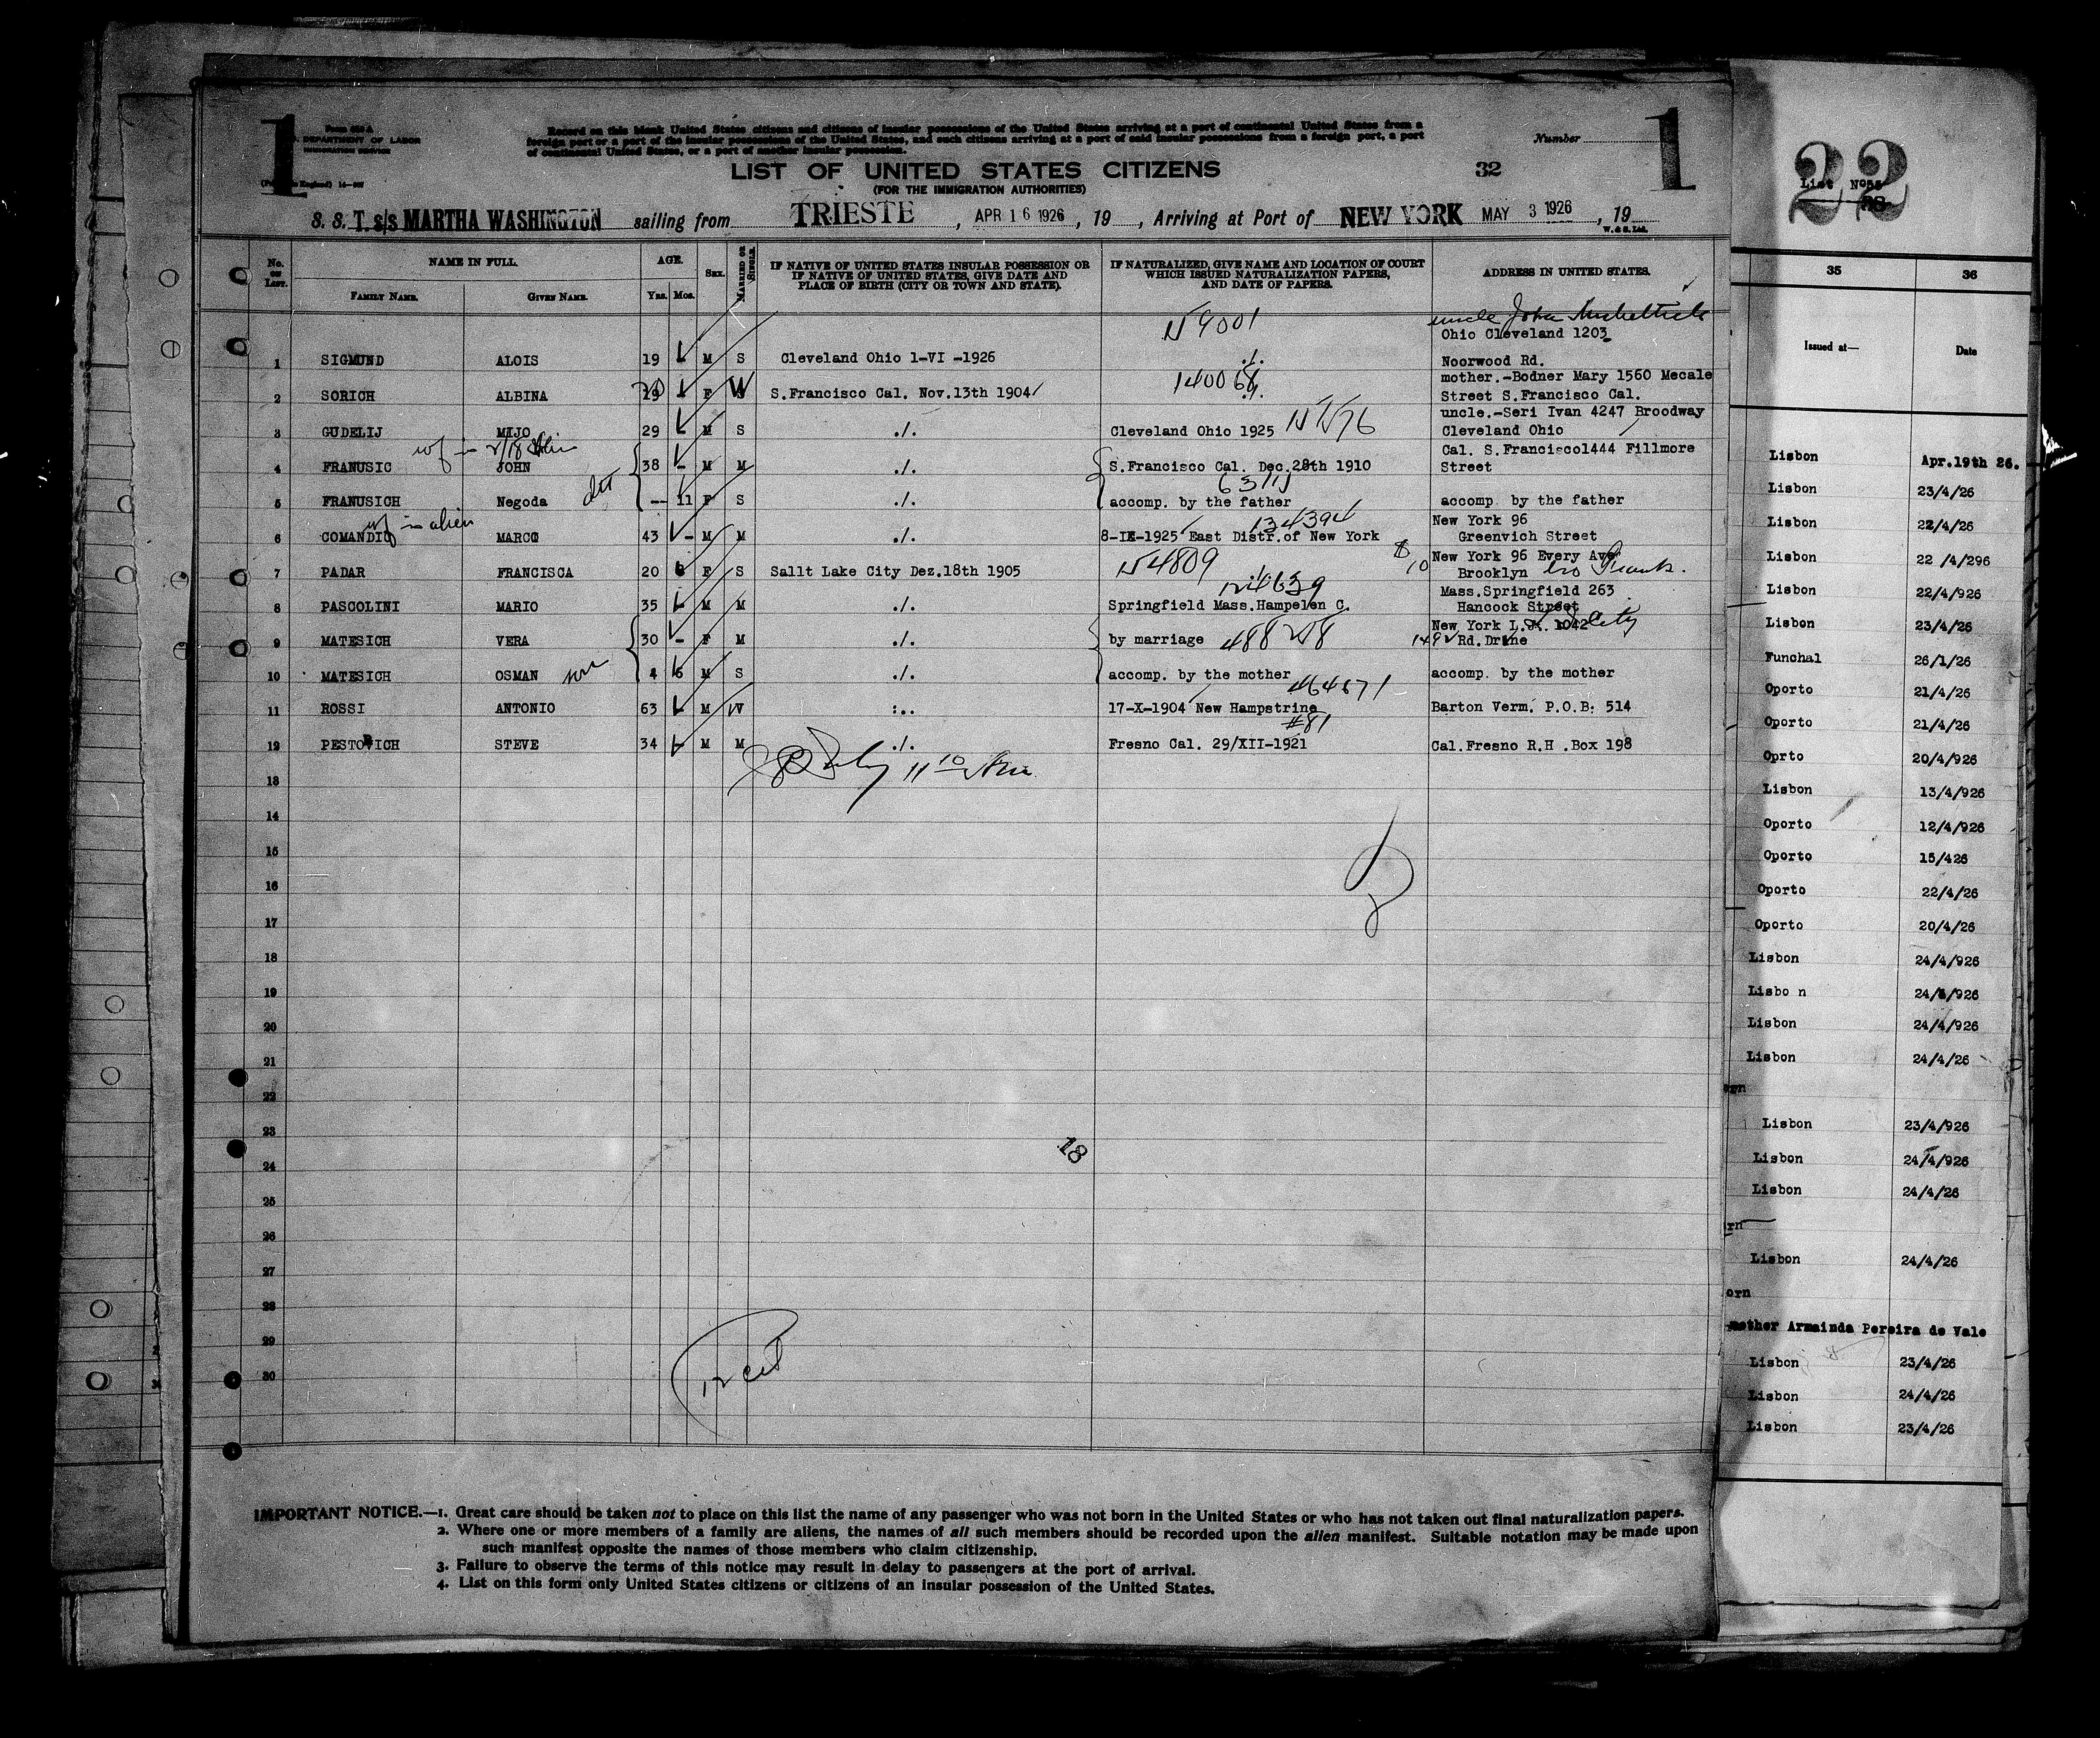 1
Form 630 A
DEPARTMENT OF LABOR
IMMIGRATION SERVICE
Record on this blank United States citizens and citizens of insular possessions of the United States arriving at a port of continental United States from a
foreign port or a port of the insular possessions of the United States, and such citizens arriving at a port of said insular possessions from a foreign port, a port
of continental United States, or a port of another insular possession.
Number
1
LIST OF UNITED STATES CITIZENS
32
(FOR THE IMMIGRATION AUTHORITIES)
S. S. T. s/s MARTHA WASHINGTON sailing from TRIESTE, APR 16 1926, 19, Arriving at Port of NEW YORK MAY 3 1926, 19
W. & S. Ltd.
No. ON LIST. NAME IN FULL. AGE. SEX. MARRIED OR SINGLE. IF NATIVE OF UNITED STATES INSULAR POSSESSION OR IF NATIVE OF UNITED STATES, GIVE DATE AND PLACE OF BIRTH (CITY OR TOWN AND STATE). IF NATURALIZED, GIVE NAME AND LOCATION OF COURT WHICH ISSUED NATURALIZATION PAPERS, AND DATE OF PAPERS. ADDRESS IN UNITED STATES.
FAMILY NAME. GIVEN NAME. Yrs. Mos.
uncle John
Ohio Cleveland 1203
1 SIGMUND ALOIS 19 - M S Cleveland Ohio 1-VI -1926 ./. Noorwood Rd.
140064
mother.-Bodner Mary 1560 Mecale
2 SORICH ALBINA F S.Francisco Cal. Nov.13th 1904 ./. Street S.Francisco Cal.
uncle.-Seri Ivan 4247 Broodway
3 GUDELIJ MIJO 29 - M S ./. Cleveland Ohio 1925 Cleveland Ohio
Cal. S.Francisco1444 Fillmore
4 FRANUSIC JOHN 38 - M M ./. S.Francisco Cal. Dec.28th 1910 Street
5 FRANUSICH Negoda -- 11 F S ./. accomp. by the father accomp. by the father
in alien
134394
New York 96
6 COMANDIC MARCO 43 - M M ./. 8-IX-1925 East Distr.of New York Greenvich Street
New York 96 Every Ave
7 PADAR FRANCISCA 20 F S Sallt Lake City Dez.18th 1905 ./. Brooklyn
Mass.Springfield 263
8 PASCOLINI MARIO 35 - M M ./. Springfield Mass.Hampelen C. Hancock Street
New York L.I. 1042
9 MATESICH VERA 30 - F M ./. by marriage Rd.Drine
10 MATESICH OSMAN 4 6 M S ./. accomp. by the mother accomp. by the mother
11 ROSSI ANTONIO 63 - M W :.. 17-X-1904 New Hampstrine Barton Verm. P.O.B. 514
#81
12 PESTOVICH STEVE 34 - M M ./. Fresno Cal. 29/XII-1921 Cal.Fresno R.H .Box 198
13
14
15
16
17
18
19
20
21
22
23
18
24
25
26
27
28
29
30
IMPORTANT NOTICE.—1. Great care should be taken not to place on this list the name of any passenger who was not born in the United States or who has not taken out final naturalization papers.
2. Where one or more members of a family are aliens, the names of all such members should be recorded upon the alien manifest. Suitable notation may be made upon
such manifest opposite the names of those members who claim citizenship.
3. Failure to observe the terms of this notice may result in delay to passengers at the port of arrival.
4. List on this form only United States citizens or citizens of an insular possession of the United States.
22
List No
35 36
Issued at— Date
Lisbon Apr.19th 26.
Lisbon 23/4/26
Lisbon 22/4/26
Lisbon 22 /4/296
Lisbon 22/4/926
Lisbon 23/4/26
Funchal 26/1/26
Oporto 21/4/26
Oporto 21/4/26
Oprto 20/4/926
Lisbon 13/4/926
Oporto 12/4/926
Oporto 15/426
Oporto 22/4/26
Oporto 20/4/26
Lisbon 24/4/926
Lisbo n 24/4/926
Lisbon 24/4/926
Lisbon 24/4/26
Lisbon 23/4/926
Lisbon 24/4/926
Lisbon 24/4/26
Lisbon 24/4/26
orn
mother Armainda Pereira de Vale
Lisbon 23/4/26
Lisbon 24/4/26
Lisbon 23/4/26